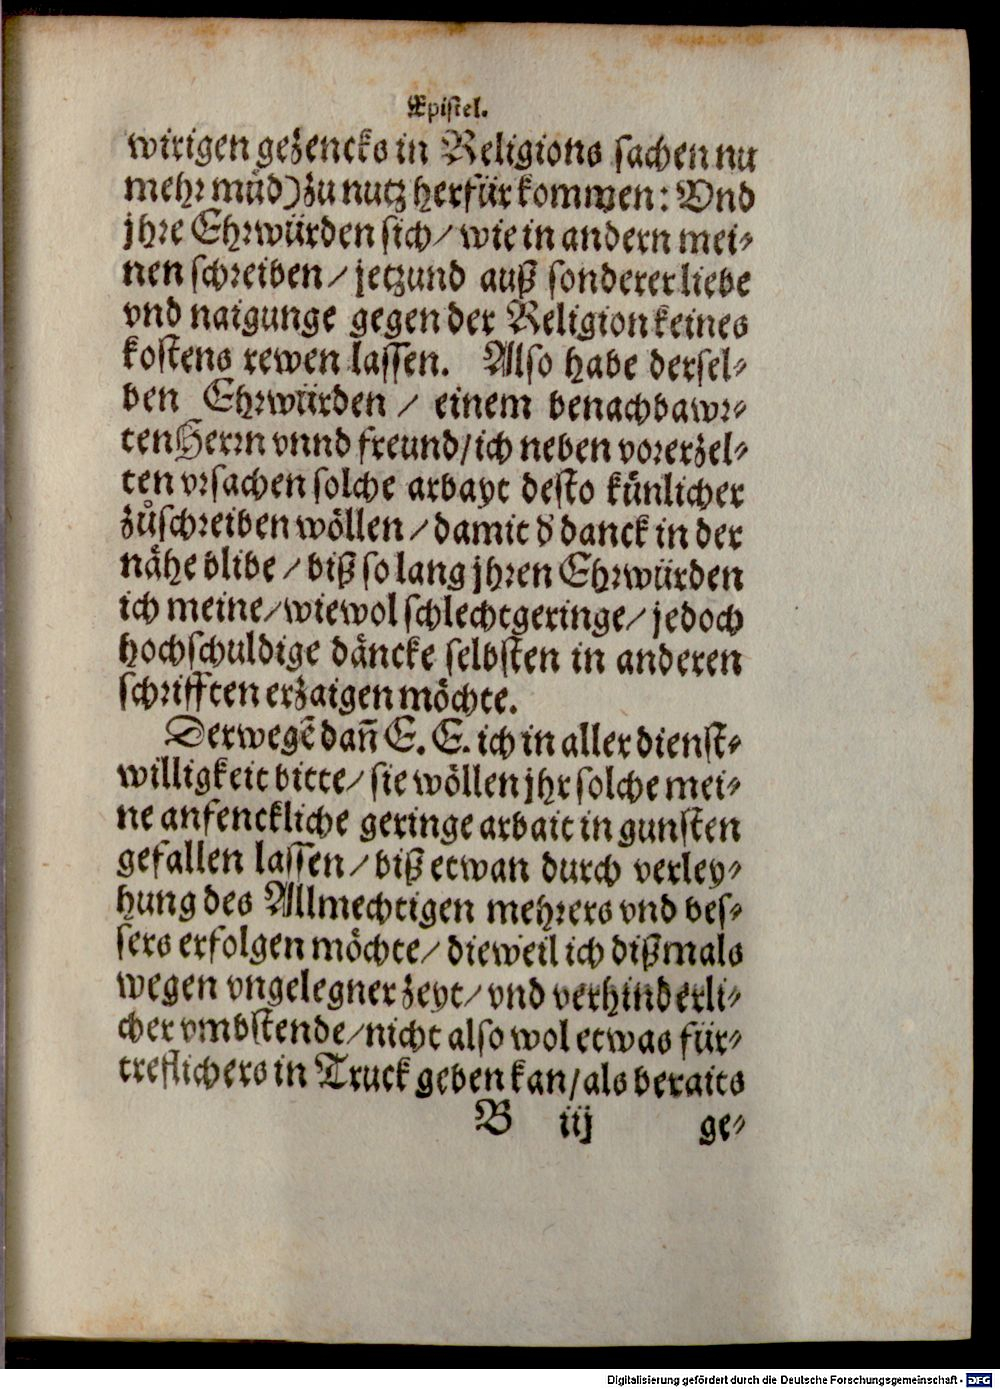 Epistel.
wirigen gezencks in Religions sachen nu
mehr müd) zu nutz herfür kommen: Vnd
jhre Ehrwürden sich/ wie in andern mei⸗
nen schreiben/ jetzund auß sonderer liebe
vnd naigunge gegen der Religion keines
kostens rewen lassen. Also habe dersel⸗
ben Ehrwürden/ einem benachbawr⸗
ten Herrn vnnd freund/ ich neben vorerzel⸗
ten vrsachen solche arbayt desto künlicher
zůschreiben wöllen/ damit d' danck in der
nähe blibe/ biß so lang jhren Ehrwürden
ich meine/ wiewol schlechtgeringe/ jedoch
hochschuldige däncke selbsten in anderen
schrifften erzaigen möchte.
Derwegē dañ E. E. ich in aller dienst⸗
willigkeit bitte/ sie wöllen jhr solche mei⸗
ne anfenckliche geringe arbait in gunsten
gefallen lassen/ biß etwan durch verley⸗
hung des Allmechtigen mehrers vnd bes⸗
sers erfolgen möchte/ dieweil ich dißmals
wegen vngelegner zeyt/ vnd verhinderli⸗
cher vmbstende/ nicht also wol etwas für⸗
treflichers in Truck geben kan/ als beraits
B iij ge⸗
Digitalisierung gefördert durch die Deutsche Forschungsgemeinschaft - DFG